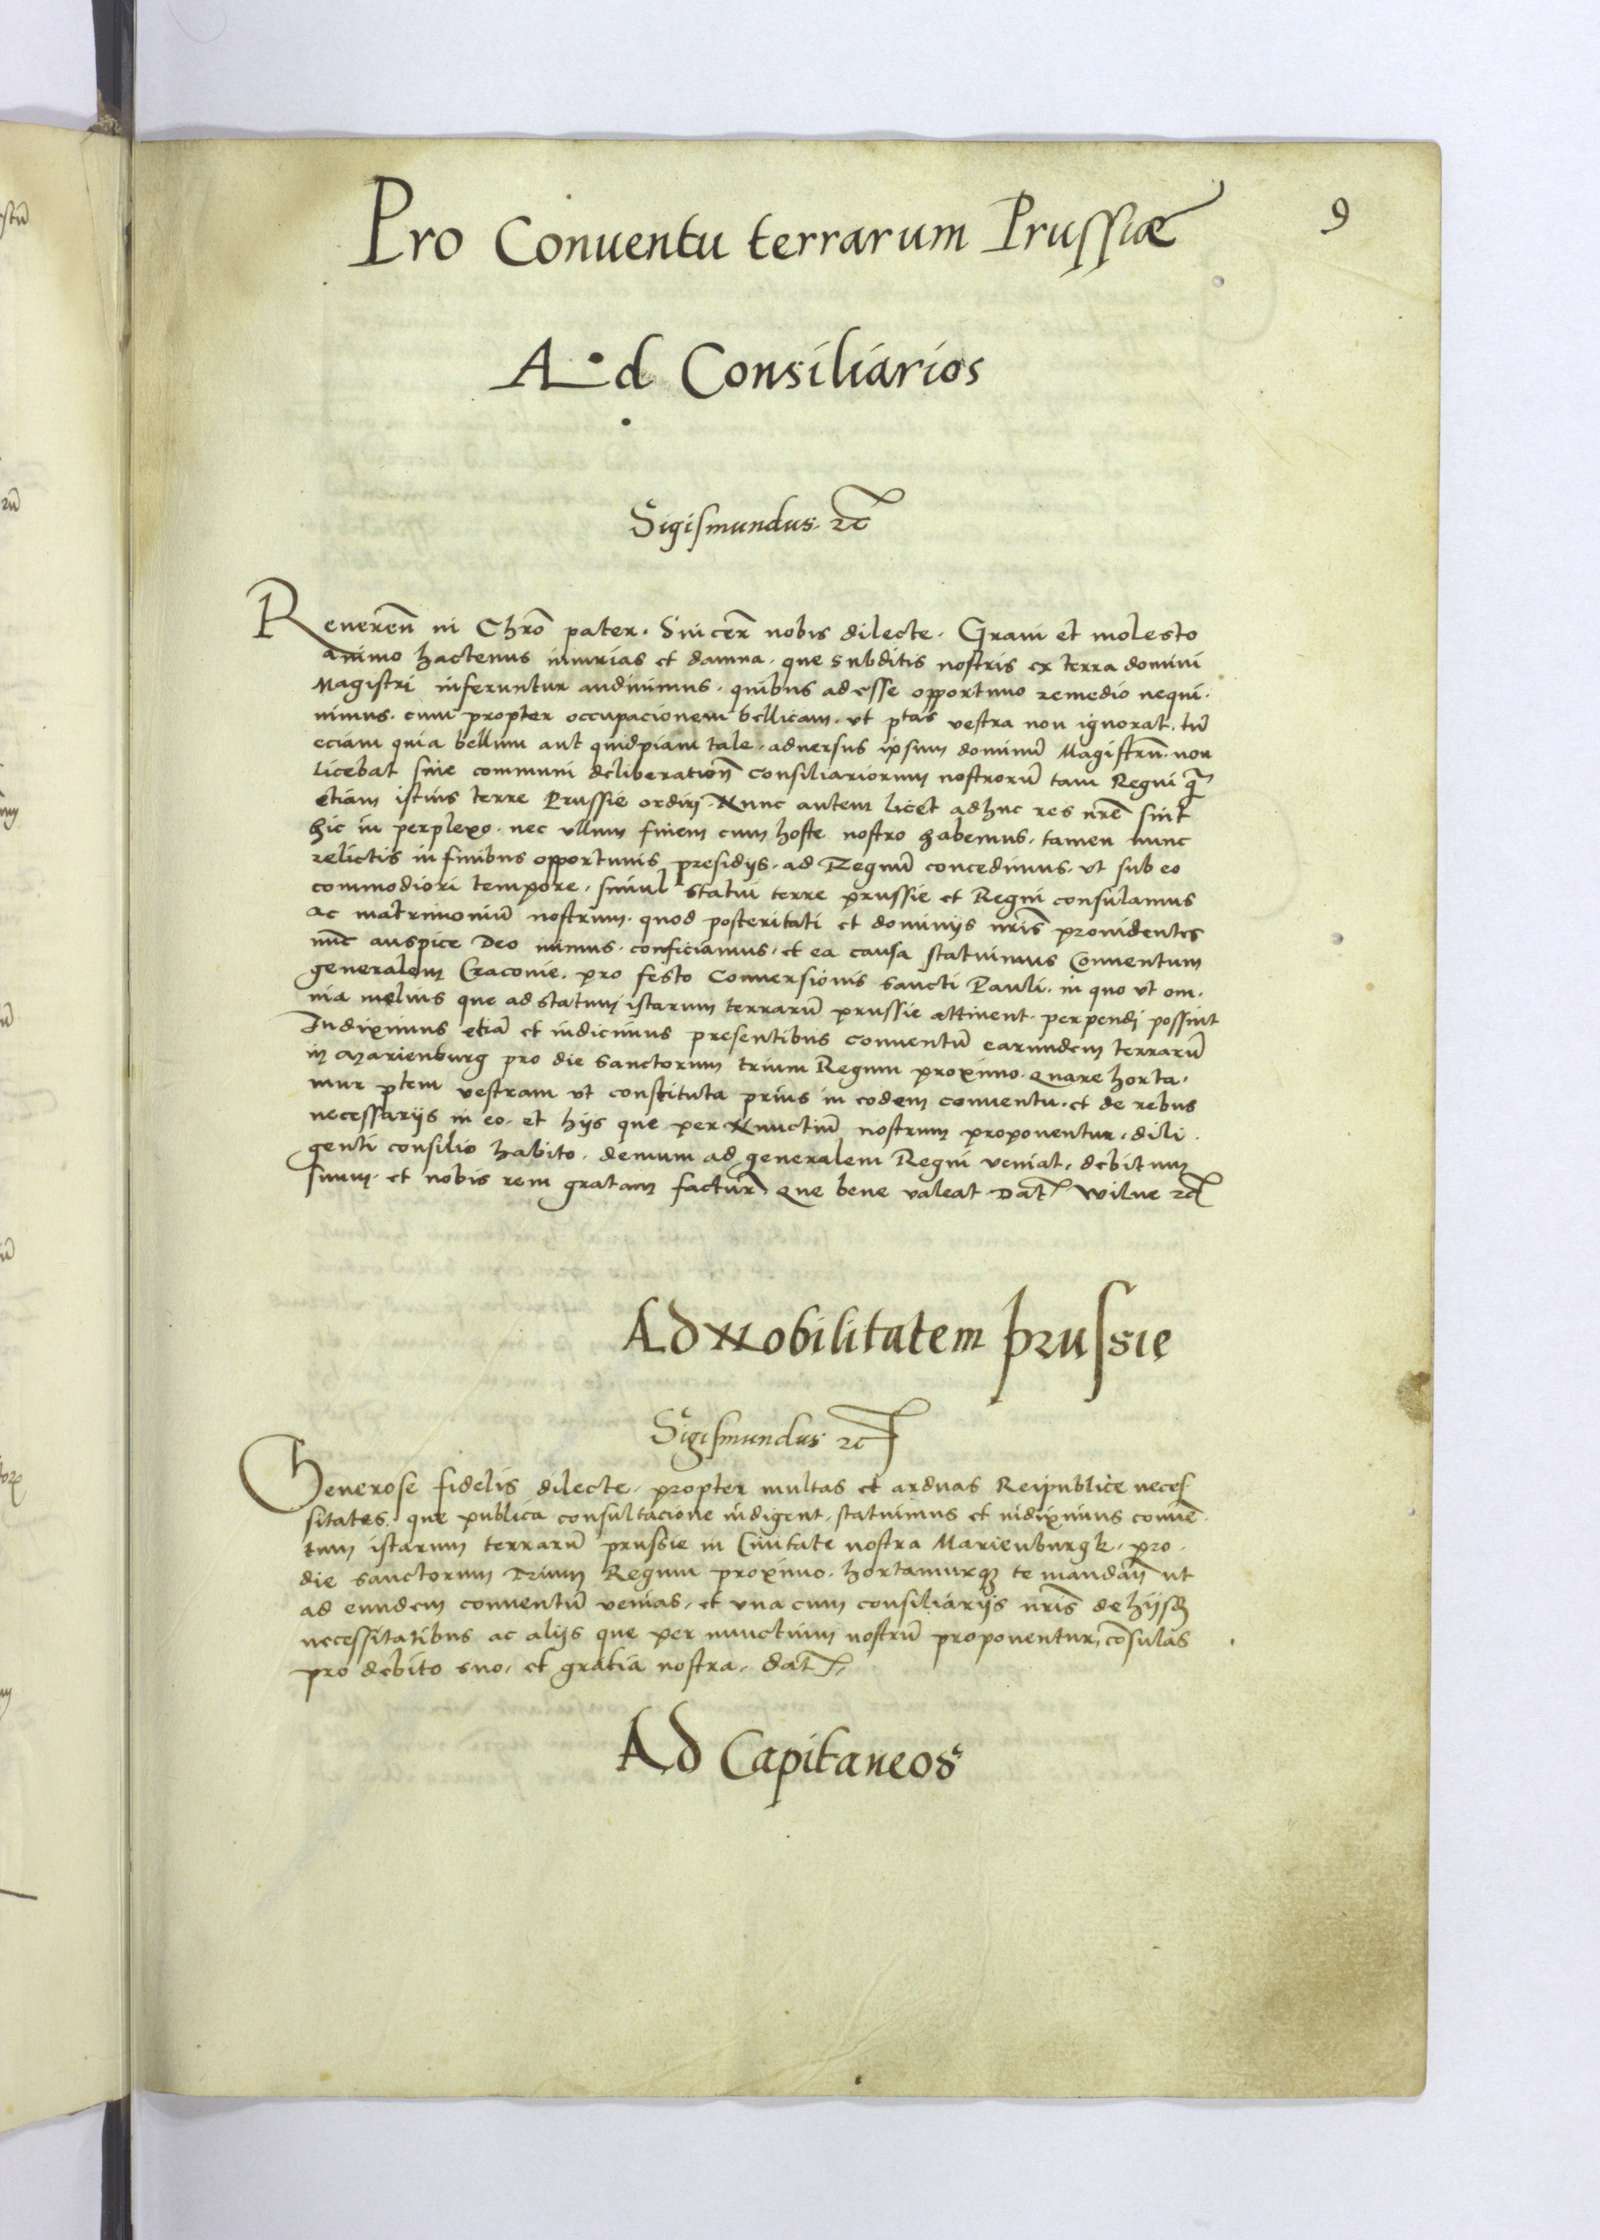 9
Pro Conuentu terrarum Prussiæ
Ad Consiliarios
Sigismundus. ꝛc̃
Reuereñ in Chrõ pater. Sincer̃ nobis dilecte. Graui et molesto
animo hactenus iniurias et damna. que subditis nostris ex terra domini
Magistri inferuntur audiuimus. quibus adesse opportuno remedio nequi.
uimus. cum propter occupacionem bellicam. vt ptas vestra non ignorat. tũ
eciam quia bellum aut quidpiam tale. aduersus ipsum dominũ Magistrũ. non
licebat sine communi deliberationẽ consiliariorum nostrorũ tam Regni q̃
etiam istius terre Prussie ordiri. Nunc autem licet adhuc res nr̃e sint
hic in perplexo. nec vllum finem cum hoste nostro habemus. tamen nunc
relictis in finibus opportunis presidijs. ad Regnũ concedimus. vt sub eo
commodiori tempore. simul statui terre prussie et Regni consulamus
ac matrimoniũ nostrum. quod posteritati et dominijs nr̃is prouidentes
nũc auspice Deo inimus. conficiamus. et ea causa statuimus Conuentum
generalem Craconie. pro festo Conuersionis sancti Pauli. in quo vt om.
nia melius que ad statum istarum terrarũ prussie attinent. perpendi possint
Indiximus etiã et indicimus presentibus conuentũ earundem terrarũ
in Marienburg pro die sanctorum trium Regum proximo. quare horta.
mur ptem vestram vt constituta prius in eodem conuentu. et de rebus
necessarijs in eo. et hijs que per Nunctiũ nostrum proponentur. dili.
genti consilio habito. demum ad generalem Regni veniat. debitum
suum. et nobis rem gratam factur̃. Que bene valeat Dat̃ Wilne ꝛc̃
Ad Nobilitatem prussię
Sigismundus ꝛc̃
Generose fidelis dilecte. propter multas et arduas Reipublice neces
sitates. que publica consultacione indigent. statuimus et indiximus conuẽ.
tum istarum terrarũ prussie in Ciuitate nostra Marienburgk. pro.
die sanctorum Trium Regum proximo. hortamurqȝ te mandañ ut
ad eundem conuentũ venias. et vna cum consiliarijs nr̃is de hijsd̃
necessitatibus ac alijs que per nunctium nostrũ proponentur, cõsulas
pro debito suo. et gratia nostra. dat̃.
Ad Capitaneos